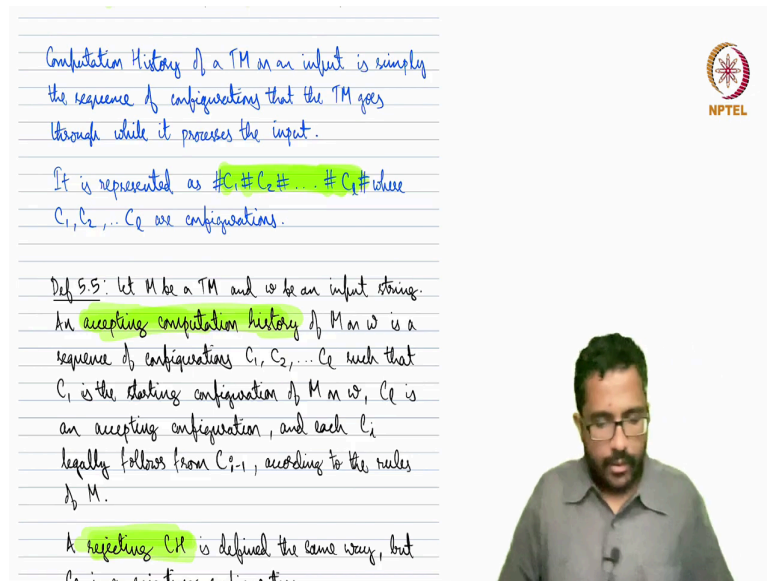 Computation History of a TM on an input is simply
the sequence of configurations that the TM goes
through while it processes the input.
It is represented as #C₁#C₂#....#Cₗ# where
C₁, C₂, .. Cₗ are configurations.
Def 5.5: Let M be a TM and w be an input string.
An accepting computation history of M on w is a
sequence of configurations C₁, C₂, ... Cₗ such that
C₁ is the starting configuration of M on w, Cₗ is
an accepting configuration, and each Cᵢ
legally follows from Cᵢ₋₁, according to the rules
of M.
A rejecting CH is defined the same way, but
NPTEL